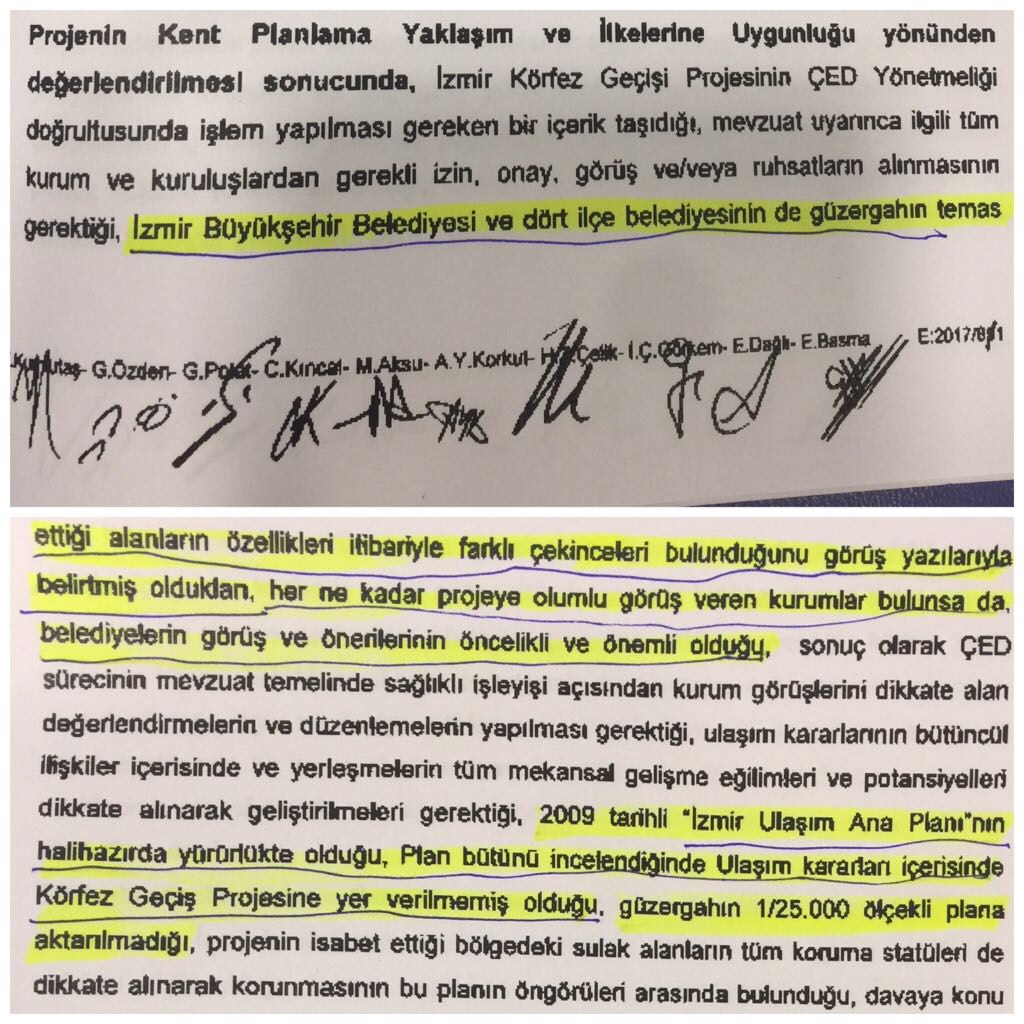 Projenin Kent Planlama Yaklaşım ve İlkelerine Uygunluğu yönünden
değerlendirilmesi sonucunda, İzmir Körfez Geçişi Projesinin ÇED Yönetmeliği
doğrultusunda işlem yapılması gereken bir içerik taşıdığı, mevzuat uyarınca ilgili tüm
kurum ve kuruluşlardan gerekli izin, onay, görüş ve/veya ruhsatların alınmasının
gerektiği, İzmir Büyükşehir Belediyesi ve dört ilçe belediyesinin de güzergahın temas
G.Özden- G.Polat- C.Kıncal- M.Aksu- A.Y.Korkut- Çelik- İ.Ç.Görkem- E.Dağlı- E.Basma
E:2017/
ettiği alanların özellikleri itibariyle farklı çekinceleri bulunduğunu görüş yazılarıyla
belirtmiş oldukları, her ne kadar projeye olumlu görüş veren kurumlar bulunsa da,
belediyelerin görüş ve önerilerinin öncelikli ve önemli olduğu, sonuç olarak ÇED
sürecinin mevzuat temelinde sağlıklı işleyişi açısından kurum görüşlerini dikkate alan
değerlendirmelerin ve düzenlemelerin yapılması gerektiği, ulaşım kararlarının bütüncül
ilişkiler içerisinde ve yerleşmelerin tüm mekansal gelişme eğilimleri ve potansiyelleri
dikkate alınarak geliştirilmeleri gerektiği, 2009 tarihli "İzmir Ulaşım Ana Planı"nın
halihazırda yürürlükte olduğu, Plan bütünü incelendiğinde Ulaşım kararları içerisinde
Körfez Geçiş Projesine yer verilmemiş olduğu, güzergahın 1/25.000 ölçekli plana
aktarılmadığı, projenin isabet ettiği bölgedeki sulak alanların tüm koruma statüleri de
dikkate alınarak korunmasının bu planın öngörüleri arasında bulunduğu, davaya konu